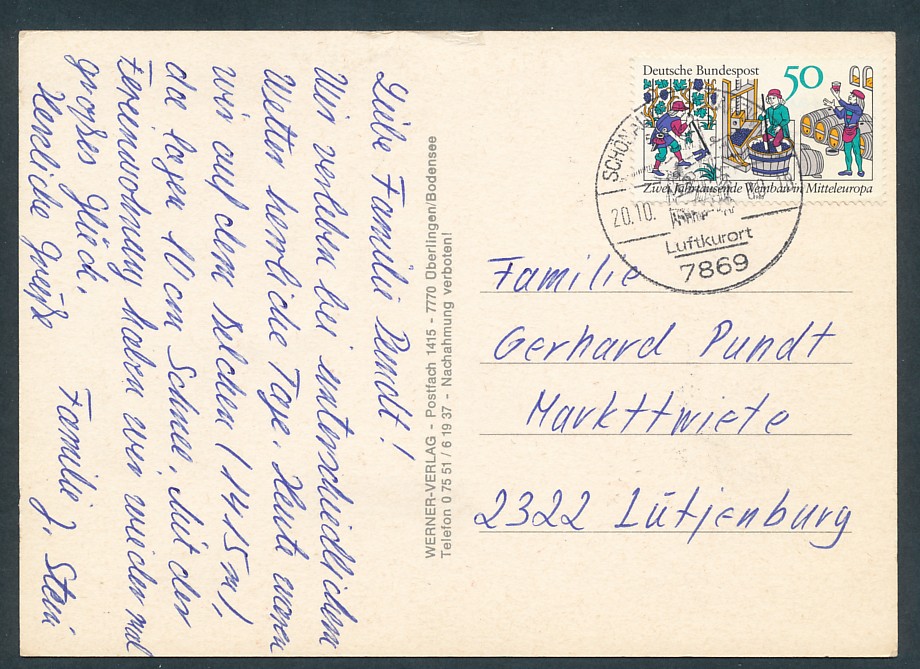 Liebe Familie Pundt!
Wir verleben bei unterschiedlichem
Wetter herrliche Tage. Heute waren
wir auf dem Belchen (1415 m),
da lagen 10 cm Schnee. Mit der
Ferienwohnung haben wir wieder mal
großes Glück.
Herzliche Grüße
Familie J. Stein
WERNER-VERLAG - Postfach 1415 - 7770 Überlingen/Bodensee
Telefon 0 75 51 / 6 19 37 - Nachahmung verboten!
Deutsche Bundespost 50
Zwei Jahrtausende Weinbau in Mitteleuropa
SCHÖNAU
20.10.
Luftkurort
7869
Familie
Gerhard Pundt
Markttwiete
2322 Lütjenburg